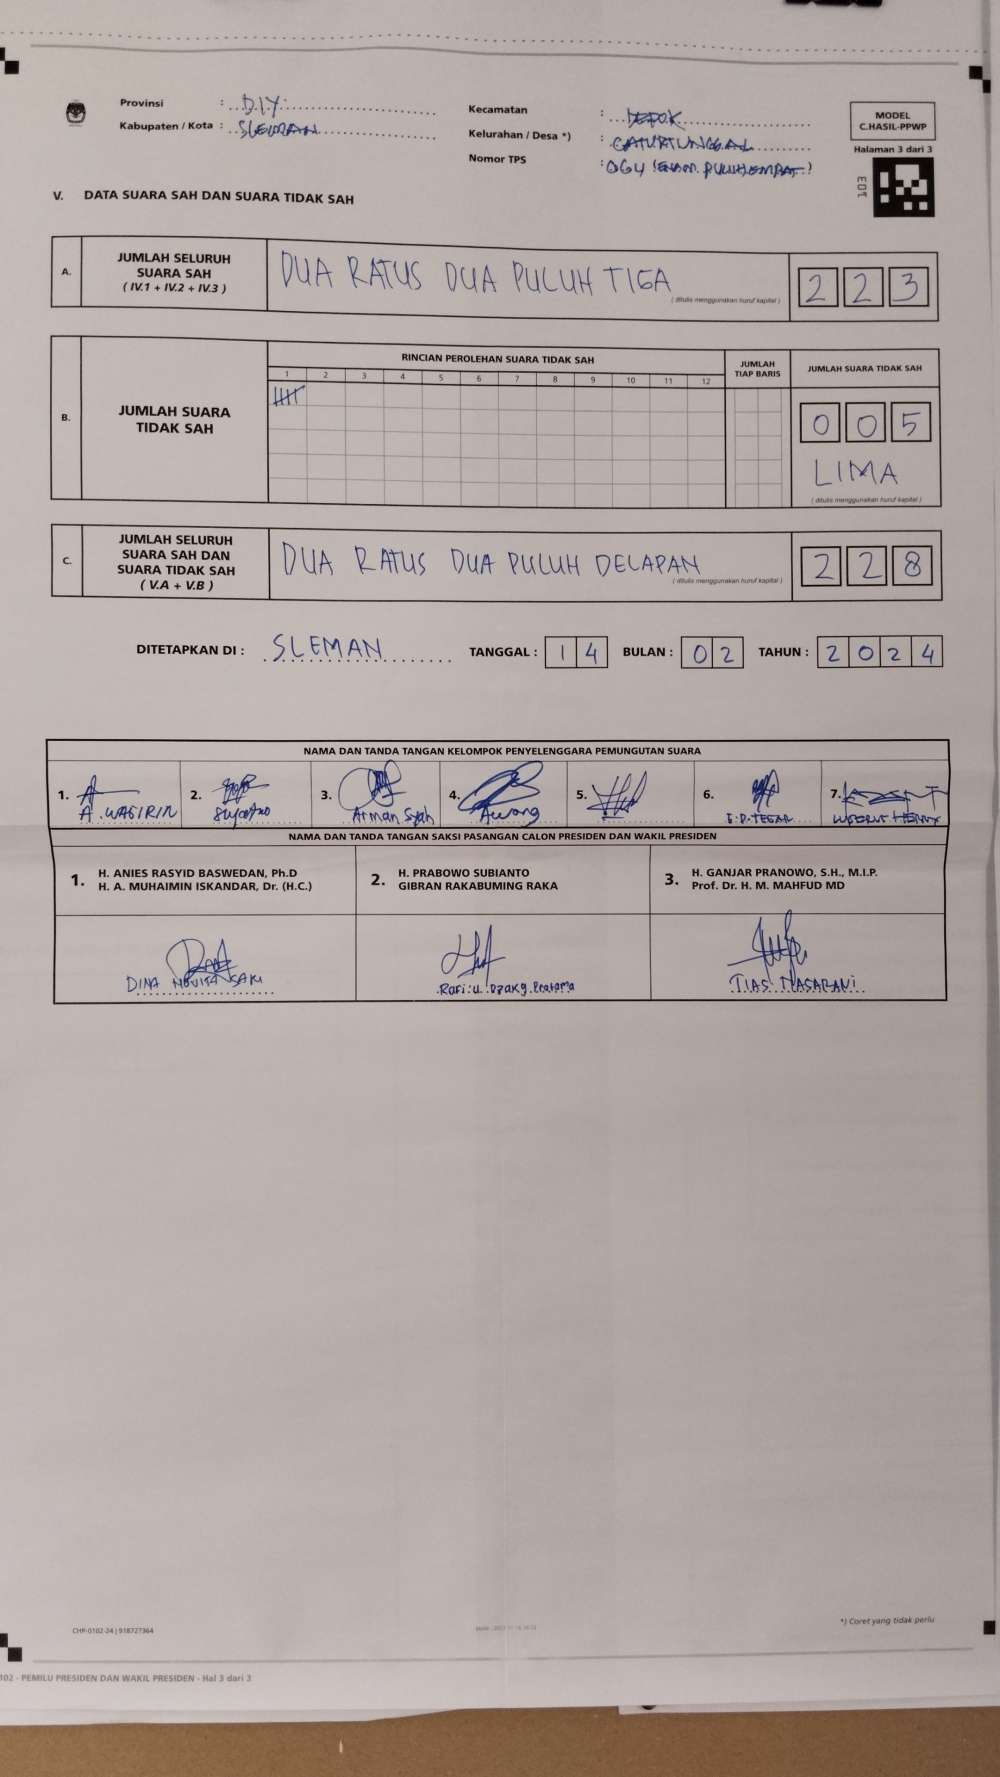 Provinsi : D.I.Y.
Kabupaten / Kota : SLEMAN
Kecamatan : DEPOK
Kelurahan / Desa *) : CATURTUNGGAL
Nomor TPS : 064 (ENAM PULUH EMPAT)
MODEL
C.HASIL-PPWP
Halaman 3 dari 3
V. DATA SUARA SAH DAN SUARA TIDAK SAH
A. JUMLAH SELURUH
SUARA SAH
( IV.1 + IV.2 + IV.3 )
DUA RATUS DUA PULUH TIGA
( ditulis menggunakan huruf kapital )
2 2 3
B. JUMLAH SUARA
TIDAK SAH
RINCIAN PEROLEHAN SUARA TIDAK SAH
1 2 3 4 5 6 7 8 9 10 11 12
JUMLAH
TIAP BARIS
JUMLAH SUARA TIDAK SAH
0 0 5
LIMA
( ditulis menggunakan huruf kapital )
C. JUMLAH SELURUH
SUARA SAH DAN
SUARA TIDAK SAH
( V.A + V.B )
DUA RATUS DUA PULUH DELAPAN
( ditulis menggunakan huruf kapital )
2 2 8
DITETAPKAN DI : SLEMAN TANGGAL : 1 4 BULAN : 0 2 TAHUN : 2 0 2 4
NAMA DAN TANDA TANGAN KELOMPOK PENYELENGGARA PEMUNGUTAN SUARA
1. 2. 3. 4. 5. 6. 7.
A. WAGIRIN Arman Syah Awang E.P. TEGAR
NAMA DAN TANDA TANGAN SAKSI PASANGAN CALON PRESIDEN DAN WAKIL PRESIDEN
1. H. ANIES RASYID BASWEDAN, Ph.D
H. A. MUHAIMIN ISKANDAR, Dr. (H.C.)
2. H. PRABOWO SUBIANTO
GIBRAN RAKABUMING RAKA
3. H. GANJAR PRANOWO, S.H., M.I.P.
Prof. Dr. H. M. MAHFUD MD
DINA NOVITA SARI
Rafi u. Dzaky Pratama
TIAS NASARANI
*) Coret yang tidak perlu
CHP-0102-24 | 918727364
102 - PEMILU PRESIDEN DAN WAKIL PRESIDEN - Hal 3 dari 3